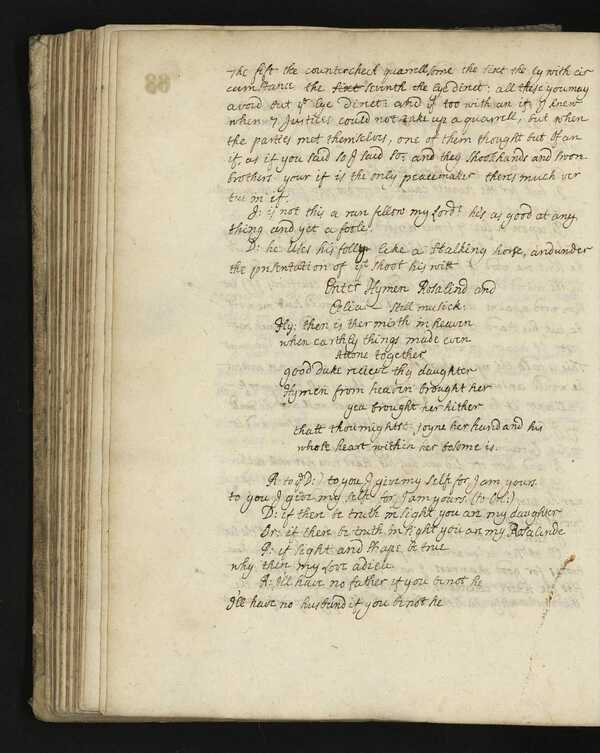 The fift the countercheck quarrellsome the sixt the ly with cir
cumstance the sixt seventh the Lye Direct: all these you may
avoid but ye Lye Direct: and yt too with an if, I knew
when 7 Justices could not take up a quarell, but when
the parties met themselves, one of them thought but of an
if, as if you said so I said so; and they shook hands and swon
brothers your if is the only peacemaker theres much ver
tue in if.
J: is not this a rare fellow my Lord? he's as good at any
thing and yet a foole.
D: he uses his folly like a stalking horse, and under
the prsentation of yt shoot his witt
Enter Hymen Rosalind and
Celia Still musick:
Hy: then is ther mirth in heaven
when earthly things made even
Attone together
good Duke recieve thy daughter
Hymen from heaven brought her
yea brought her hither
thatt thou mightst joyne her hand and his
whose heart within her bosome is.
R to ye D:) to you I give my self for I am yours.
to you I give my self for I am yours (to Orl:)
D: if then be truth in sight you are my daughter
Or: if then be truth in sight you are my Rosalinde
P: if sight and shape be true
why then my Love adieu
R: I'll have no father if you be not he
I'll have no husband if you be not he